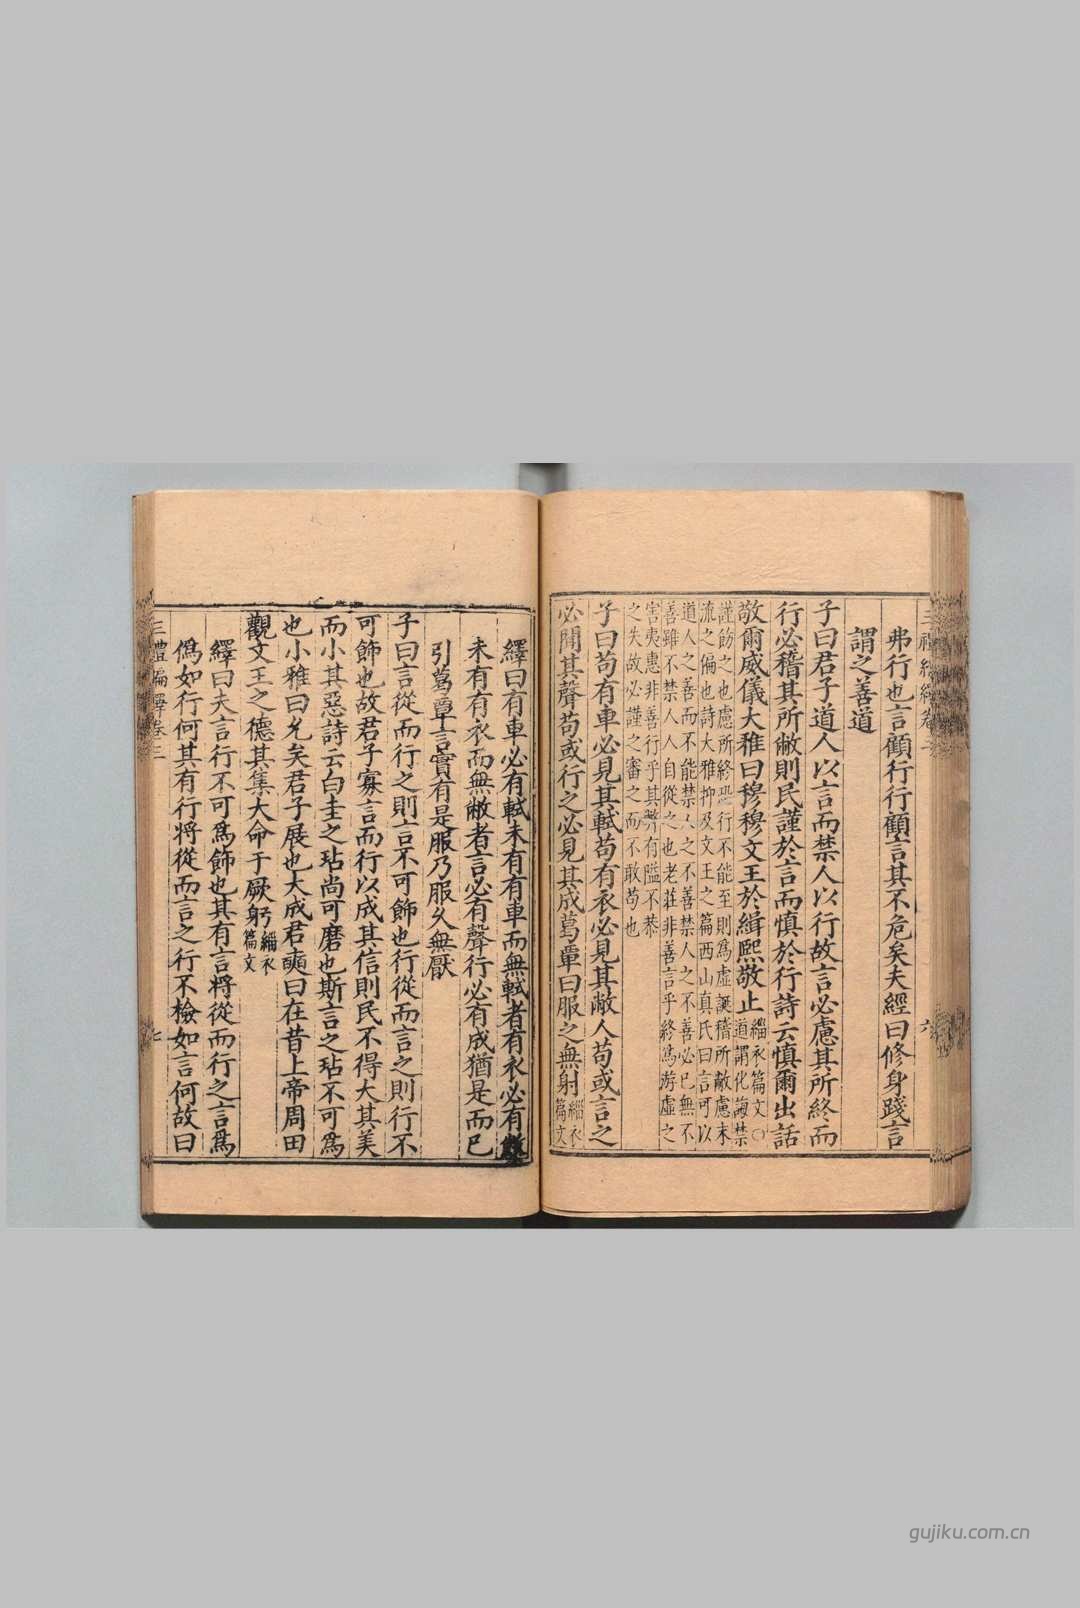 弗行也言顧行行顧言其不危矣夫經曰修身踐言
謂之善道
子曰君子道人以言而禁人以行故言必慮其所終而
行必稽其所敝則民謹於言而慎於行詩云慎爾出話
敬爾威儀大雅曰穆穆文王於緝熙敬止
緇衣篇文○
道謂化誨禁
謹飭之也慮所終恐行不能至則為虛誕稽所敝慮末
流之偏也詩大雅抑及文王之篇西山真氏曰言可以
道人之善而不能禁人之不善禁人之不善必已無不
善雖不禁人人自從之也老莊非善言乎終為游虛之
害夷惠非善行乎其弊有隘不恭
之失故必謹之審之而不敢苟也
子曰苟有車必見其軾苟有衣必見其敝人苟或言之
必聞其聲苟或行之必見其成葛覃曰服之無射
緇衣
篇文
六
繹曰有車必有軾未有有車而無軾者有衣必有
未有有衣而無敝者言必有聲行必有成猶是而已
引葛覃言實有是服乃服久無厭
子曰言從而行之則言不可飾也行從而言之則行不
可飾也故君子寡言而行以成其信則民不得大其美
而小其惡詩云白圭之玷尚可磨也斯言之玷不可為
也小雅曰允矣君子展也大成君奭曰在昔上帝周田
觀文王之德其集大命于厥躬
緇衣
篇文
繹曰夫言行不可為飾也其有言將從而行之言為
偽如行何其有行將從而言之行不檢如言何故曰
三禮編繹卷三
七
gujiku.com.cn